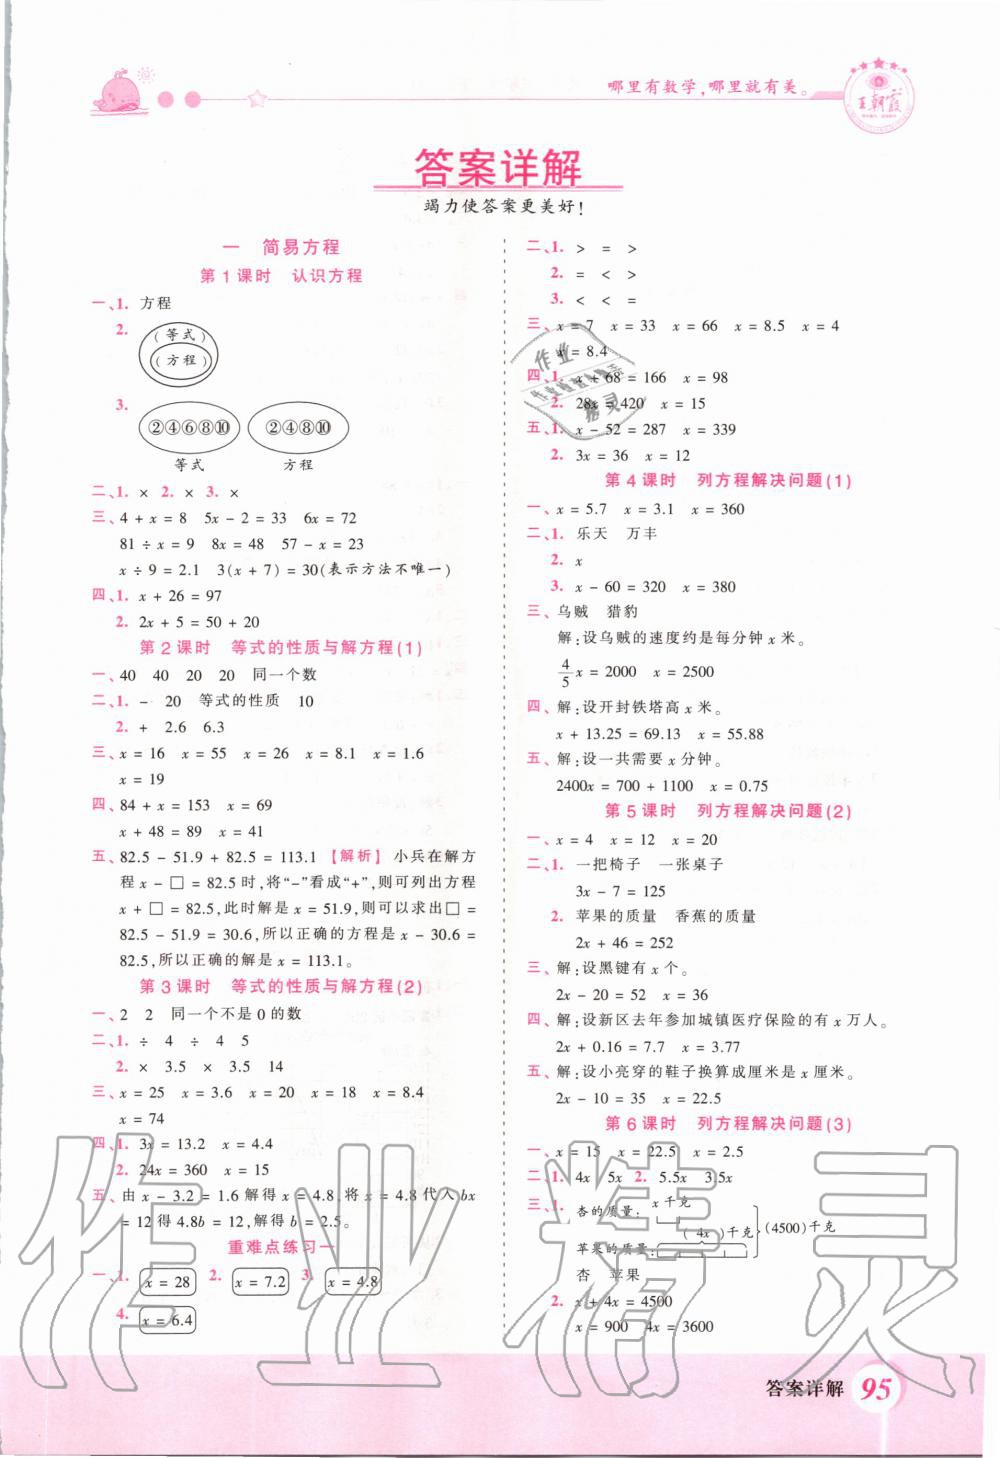 哪里有数学,哪里就有美。
王朝霞
答案详解
竭力使答案更美好!
一 简易方程
第1课时 认识方程
一、1. 方程
2. (等式)
(方程)
3. ②④⑥⑧⑩ ②④⑧⑩
等式 方程
二、1. × 2. × 3. ×
三、4 + x = 8 5x - 2 = 33 6x = 72
81 ÷ x = 9 8x = 48 57 - x = 23
x ÷ 9 = 2.1 3(x + 7) = 30(表示方法不唯一)
四、1. x + 26 = 97
2. 2x + 5 = 50 + 20
第2课时 等式的性质与解方程(1)
一、40 40 20 20 同一个数
二、1. - 20 等式的性质 10
2. + 2.6 6.3
三、x = 16 x = 55 x = 26 x = 8.1 x = 1.6
x = 19
四、84 + x = 153 x = 69
x + 48 = 89 x = 41
五、82.5 - 51.9 + 82.5 = 113.1 【解析】 小兵在解方
程 x - □ = 82.5 时,将“-”看成“+”,则可列出方程
x + □ = 82.5,此时解是 x = 51.9,则可以求出□ =
82.5 - 51.9 = 30.6,所以正确的方程是 x - 30.6 =
82.5,所以正确的解是 x = 113.1。
第3课时 等式的性质与解方程(2)
一、2 2 同一个不是 0 的数
二、1. ÷ 4 ÷ 4 5
2. × 3.5 × 3.5 14
三、x = 25 x = 3.6 x = 20 x = 18 x = 8.4
x = 74
四、1. 3x = 13.2 x = 4.4
2. 24x = 360 x = 15
五、由 x - 3.2 = 1.6 解得 x = 4.8,将 x = 4.8 代入 bx
= 12 得 4.8b = 12,解得 b = 2.5。
重难点练习一
一、1. x = 28 2. x = 7.2 3. x = 4.8
4. x = 6.4
二、1. > = >
2. = < >
3. < < =
三、x = 7 x = 33 x = 66 x = 8.5 x = 4
x = 8.4
四、1. x + 68 = 166 x = 98
2. 28x = 420 x = 15
五、1. x - 52 = 287 x = 339
2. 3x = 36 x = 12
第4课时 列方程解决问题(1)
一、x = 5.7 x = 3.1 x = 360
二、1. 乐天 万丰
2. x
3. x - 60 = 320 x = 380
三、乌贼 猎豹
解:设乌贼的速度约是每分钟 x 米。
4/5 x = 2000 x = 2500
四、解:设开封铁塔高 x 米。
x + 13.25 = 69.13 x = 55.88
五、解:设一共需要 x 分钟。
2400x = 700 + 1100 x = 0.75
第5课时 列方程解决问题(2)
一、x = 4 x = 12 x = 20
二、1. 一把椅子 一张桌子
3x - 7 = 125
2. 苹果的质量 香蕉的质量
2x + 46 = 252
三、解:设黑键有 x 个。
2x - 20 = 52 x = 36
四、解:设新区去年参加城镇医疗保险的有 x 万人。
2x + 0.16 = 7.7 x = 3.77
五、解:设小亮穿的鞋子换算成厘米是 x 厘米。
2x - 10 = 35 x = 22.5
第6课时 列方程解决问题(3)
一、x = 15 x = 22.5 x = 2.5
二、1. 4x 5x 2. 5.5x 3.5x
三、1. 杏的质量: x千克
(4x)千克 (4500)千克
苹果的质量:
杏 苹果
2. x + 4x = 4500
x = 900 4x = 3600
作业精灵
答案详解 95